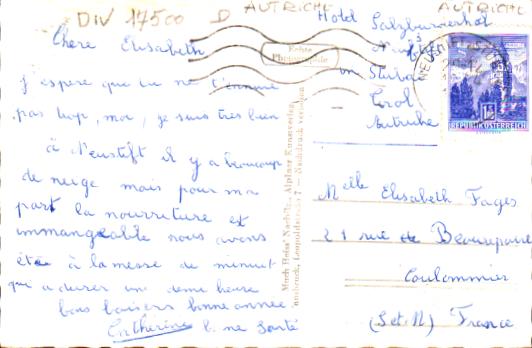 DIV 17500 D AUTRICHE AUTRICHE
Hotel Salzburgerhof
Neustift
im Stubai
Tirol
Autriche
Chère Elisabeth
j'espère que tu ne t'ennuie
pas trop, moi, je suis très bien
à Neustift il y a beaucoup
de neige mais pour ma
part la nourriture est
immangeable nous avons
étée à la messe de minuit
qui a durer une demi heure
bons baisers bonne année
Catherine b. ne santé
Echte
Photographie
REPUBLIK ÖSTERREICH
Melle Elisabeth Fages
21 rue de Beaurepaire
Coulommier
(S et M) France